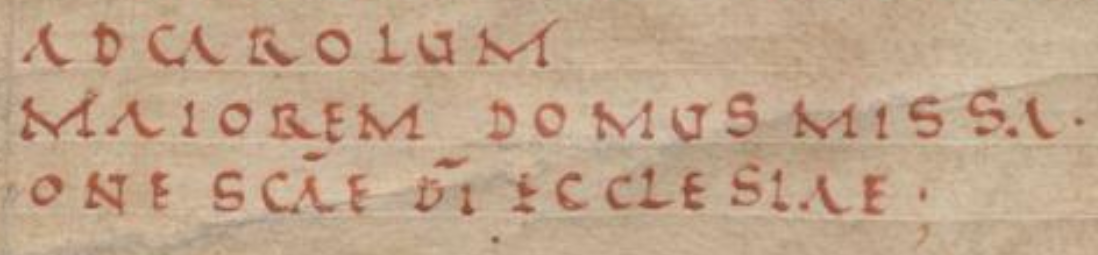 ADCAROLUM
MAIOREM DOMUS MISSA.
ONE SCĀE D̄I ECCLESIAE;